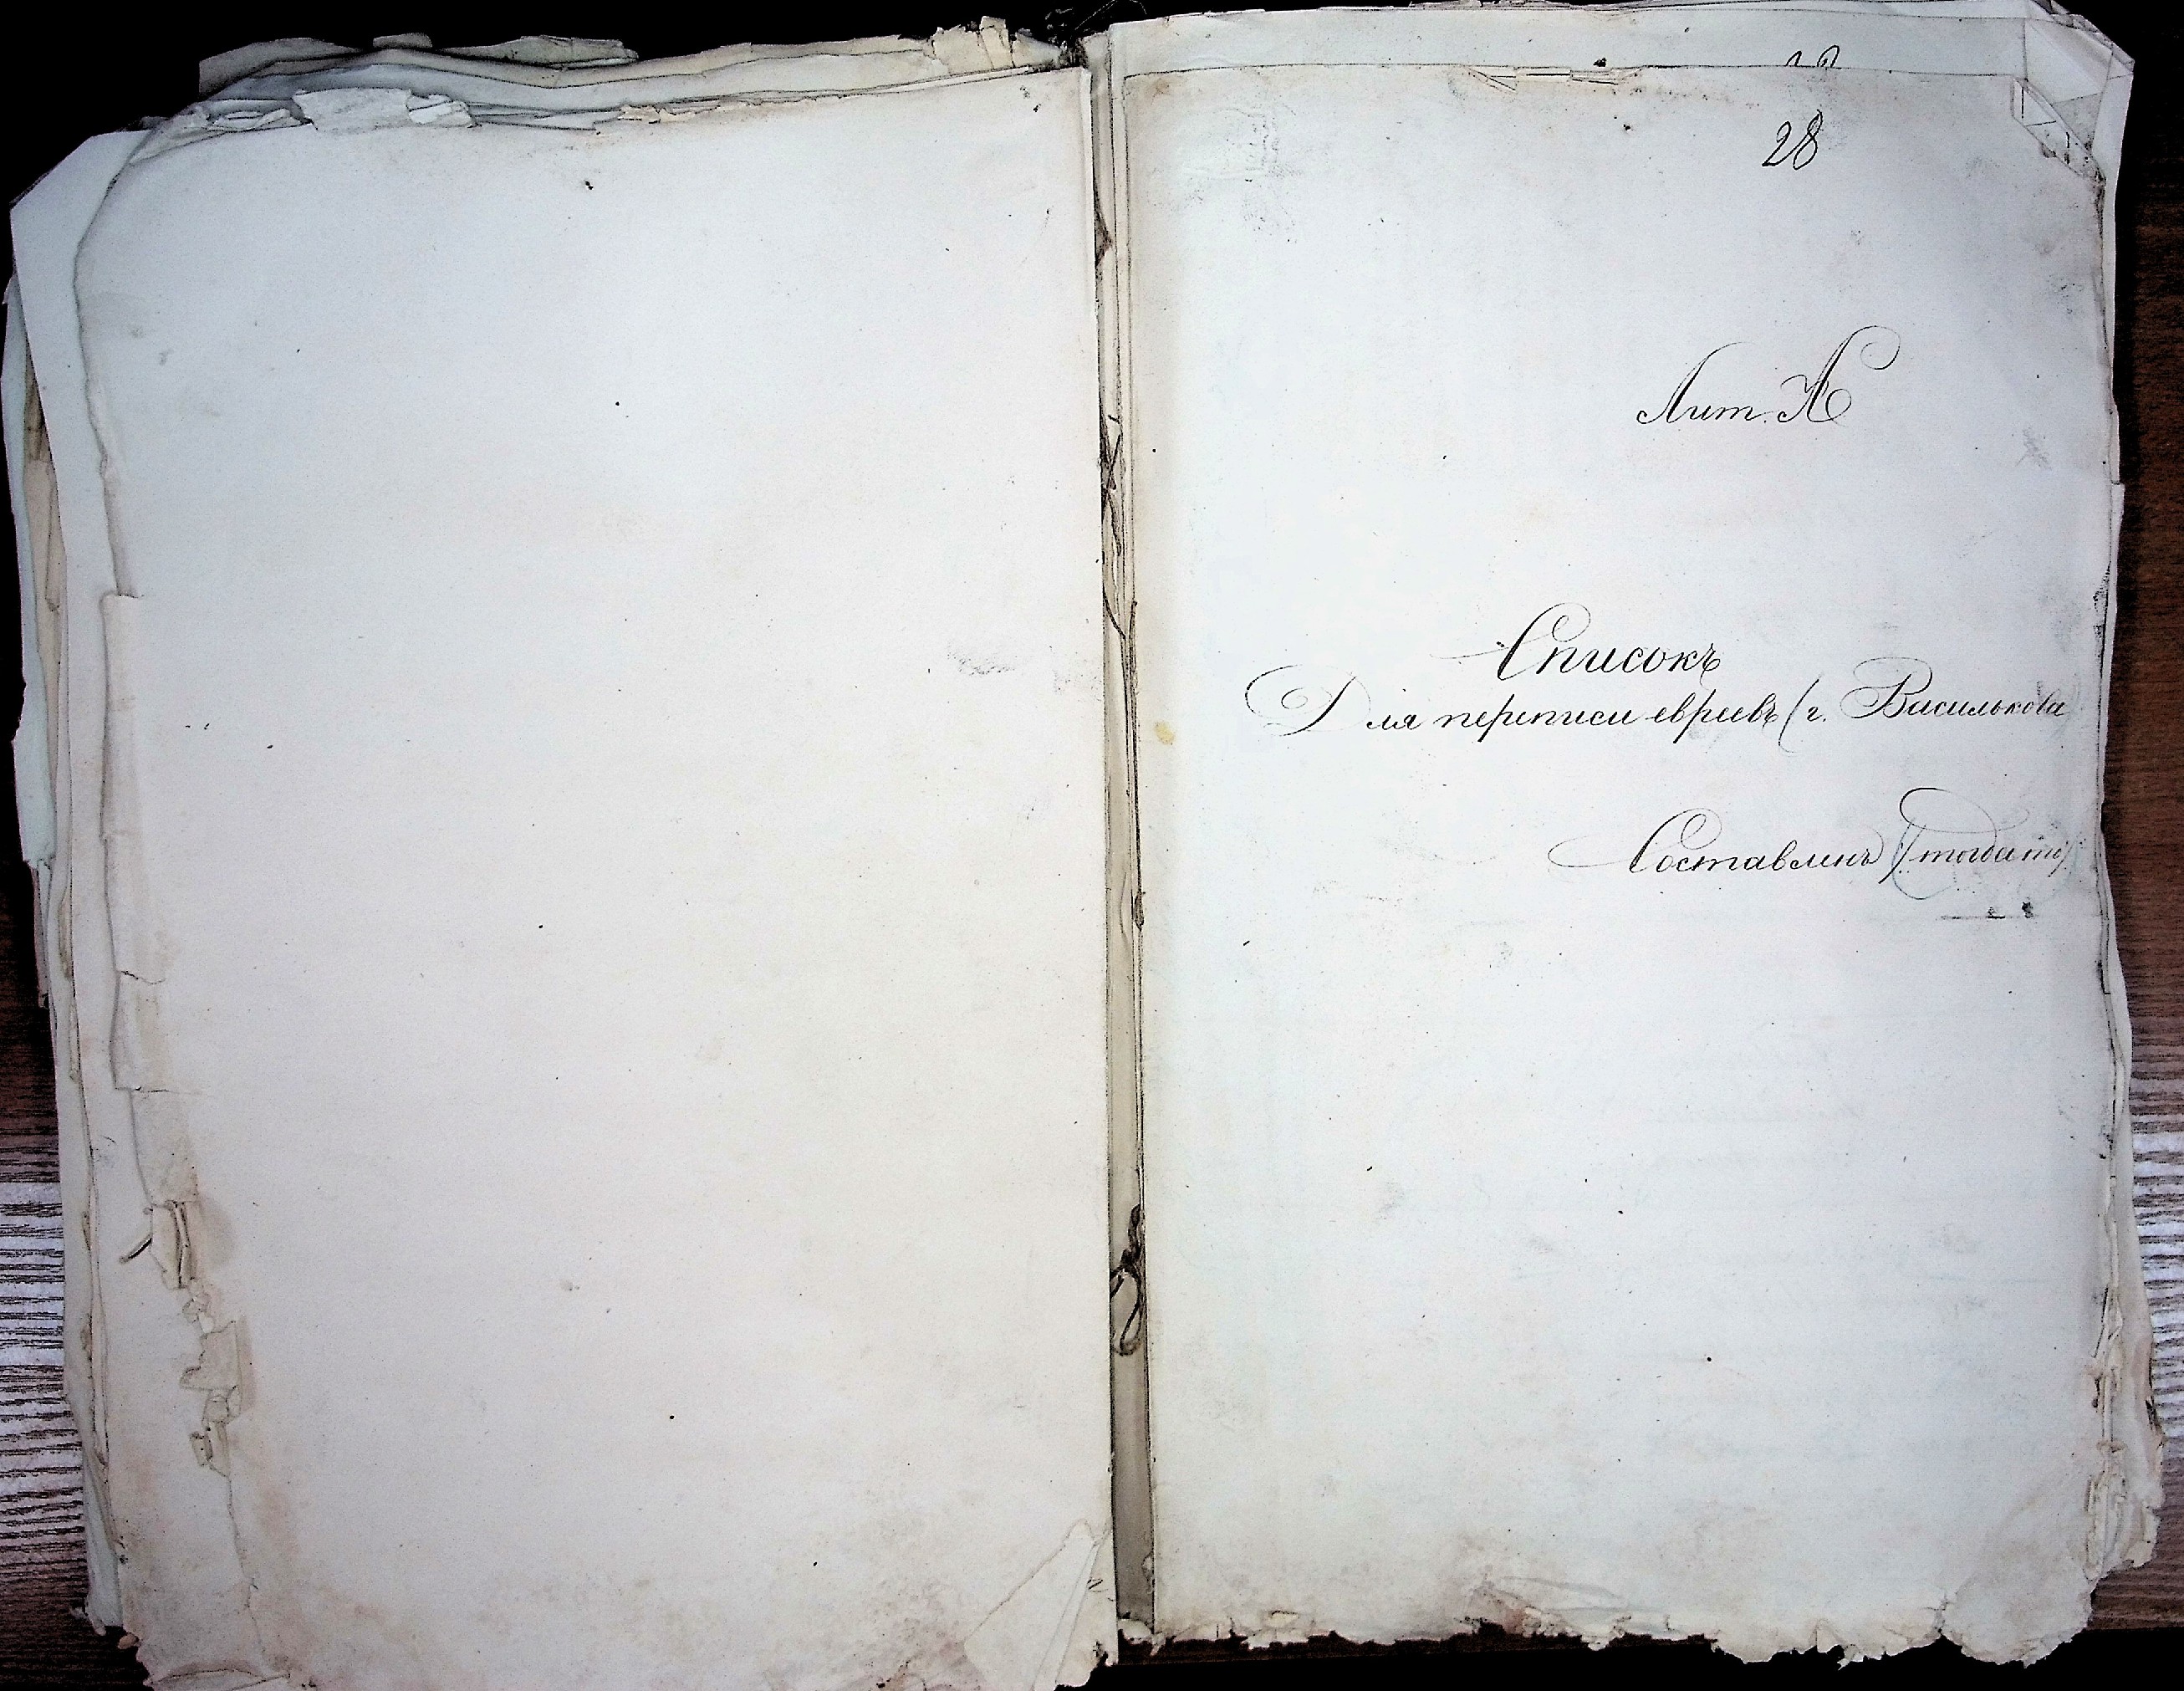 28
Лит. А
Списокъ
Для переписи евреевъ (г. Василькова
Составленъ (тогда то)